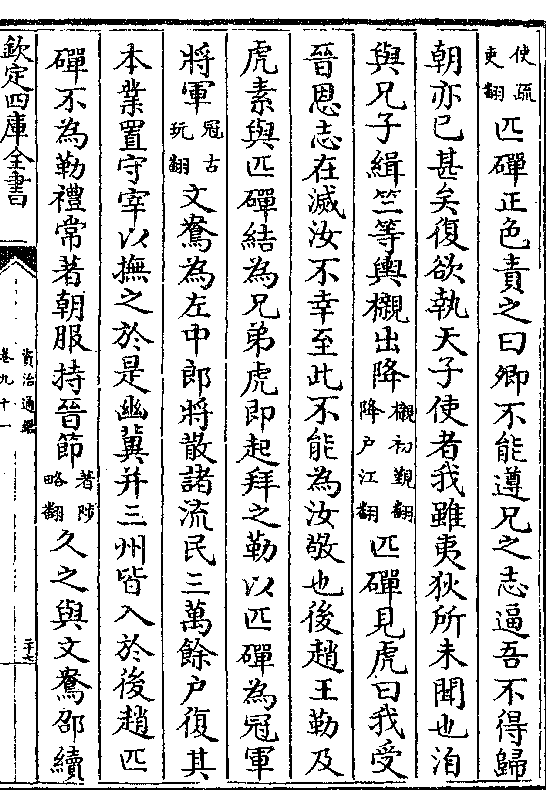 使疏吏翻匹磾正色責之曰卿不能遵兄之志逼吾不得歸
朝亦已甚矣復欲執天子使者我雖夷狄所未聞也洎
與兄子緝竺等輿櫬出降櫬初覲翻降户江翻匹磾見虎曰我受
晉恩志在滅汝不幸至此不能為汝敬也後趙王勒及
虎素與匹磾結為兄弟虎即起拜之勒以匹磾為冠軍
將軍冠古玩翻文鴦為左中郎將散諸流民三萬餘户復其
本業置守宰以撫之於是幽冀并三州皆入於後趙匹
磾不為勒禮常著朝服持晉節著陟略翻久之與文鴦邵續
欽定四庫全書
資治通鑑
卷九十一